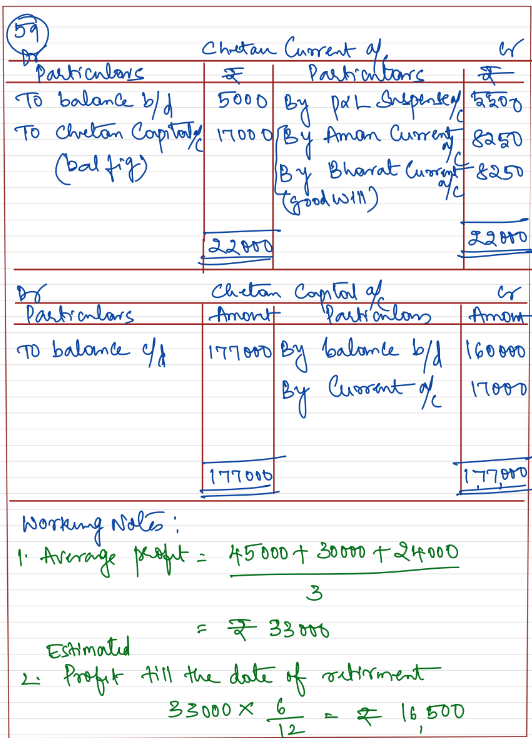 59
Dr Chetan Current a/c Cr
Particulars ₹ Particulars ₹
To balance b/d 5000 By P&L Suspense a/c 5500
To Chetan Capital a/c 17000 By Aman Current a/c 8250
(bal fig) By Bharat Current a/c 8250
(goodwill)
22000 22000
Dr Chetan Capital a/c Cr
Particulars Amount Particulars Amount
To balance c/d 177000 By balance b/d 160000
By Current a/c 17000
177000 1,77,000
Working Notes:
1. Average profit = 45000 + 30000 + 24000
3
= ₹ 33000
Estimated
2. Profit till the date of retirment
33000 × 6/12 = ₹ 16,500